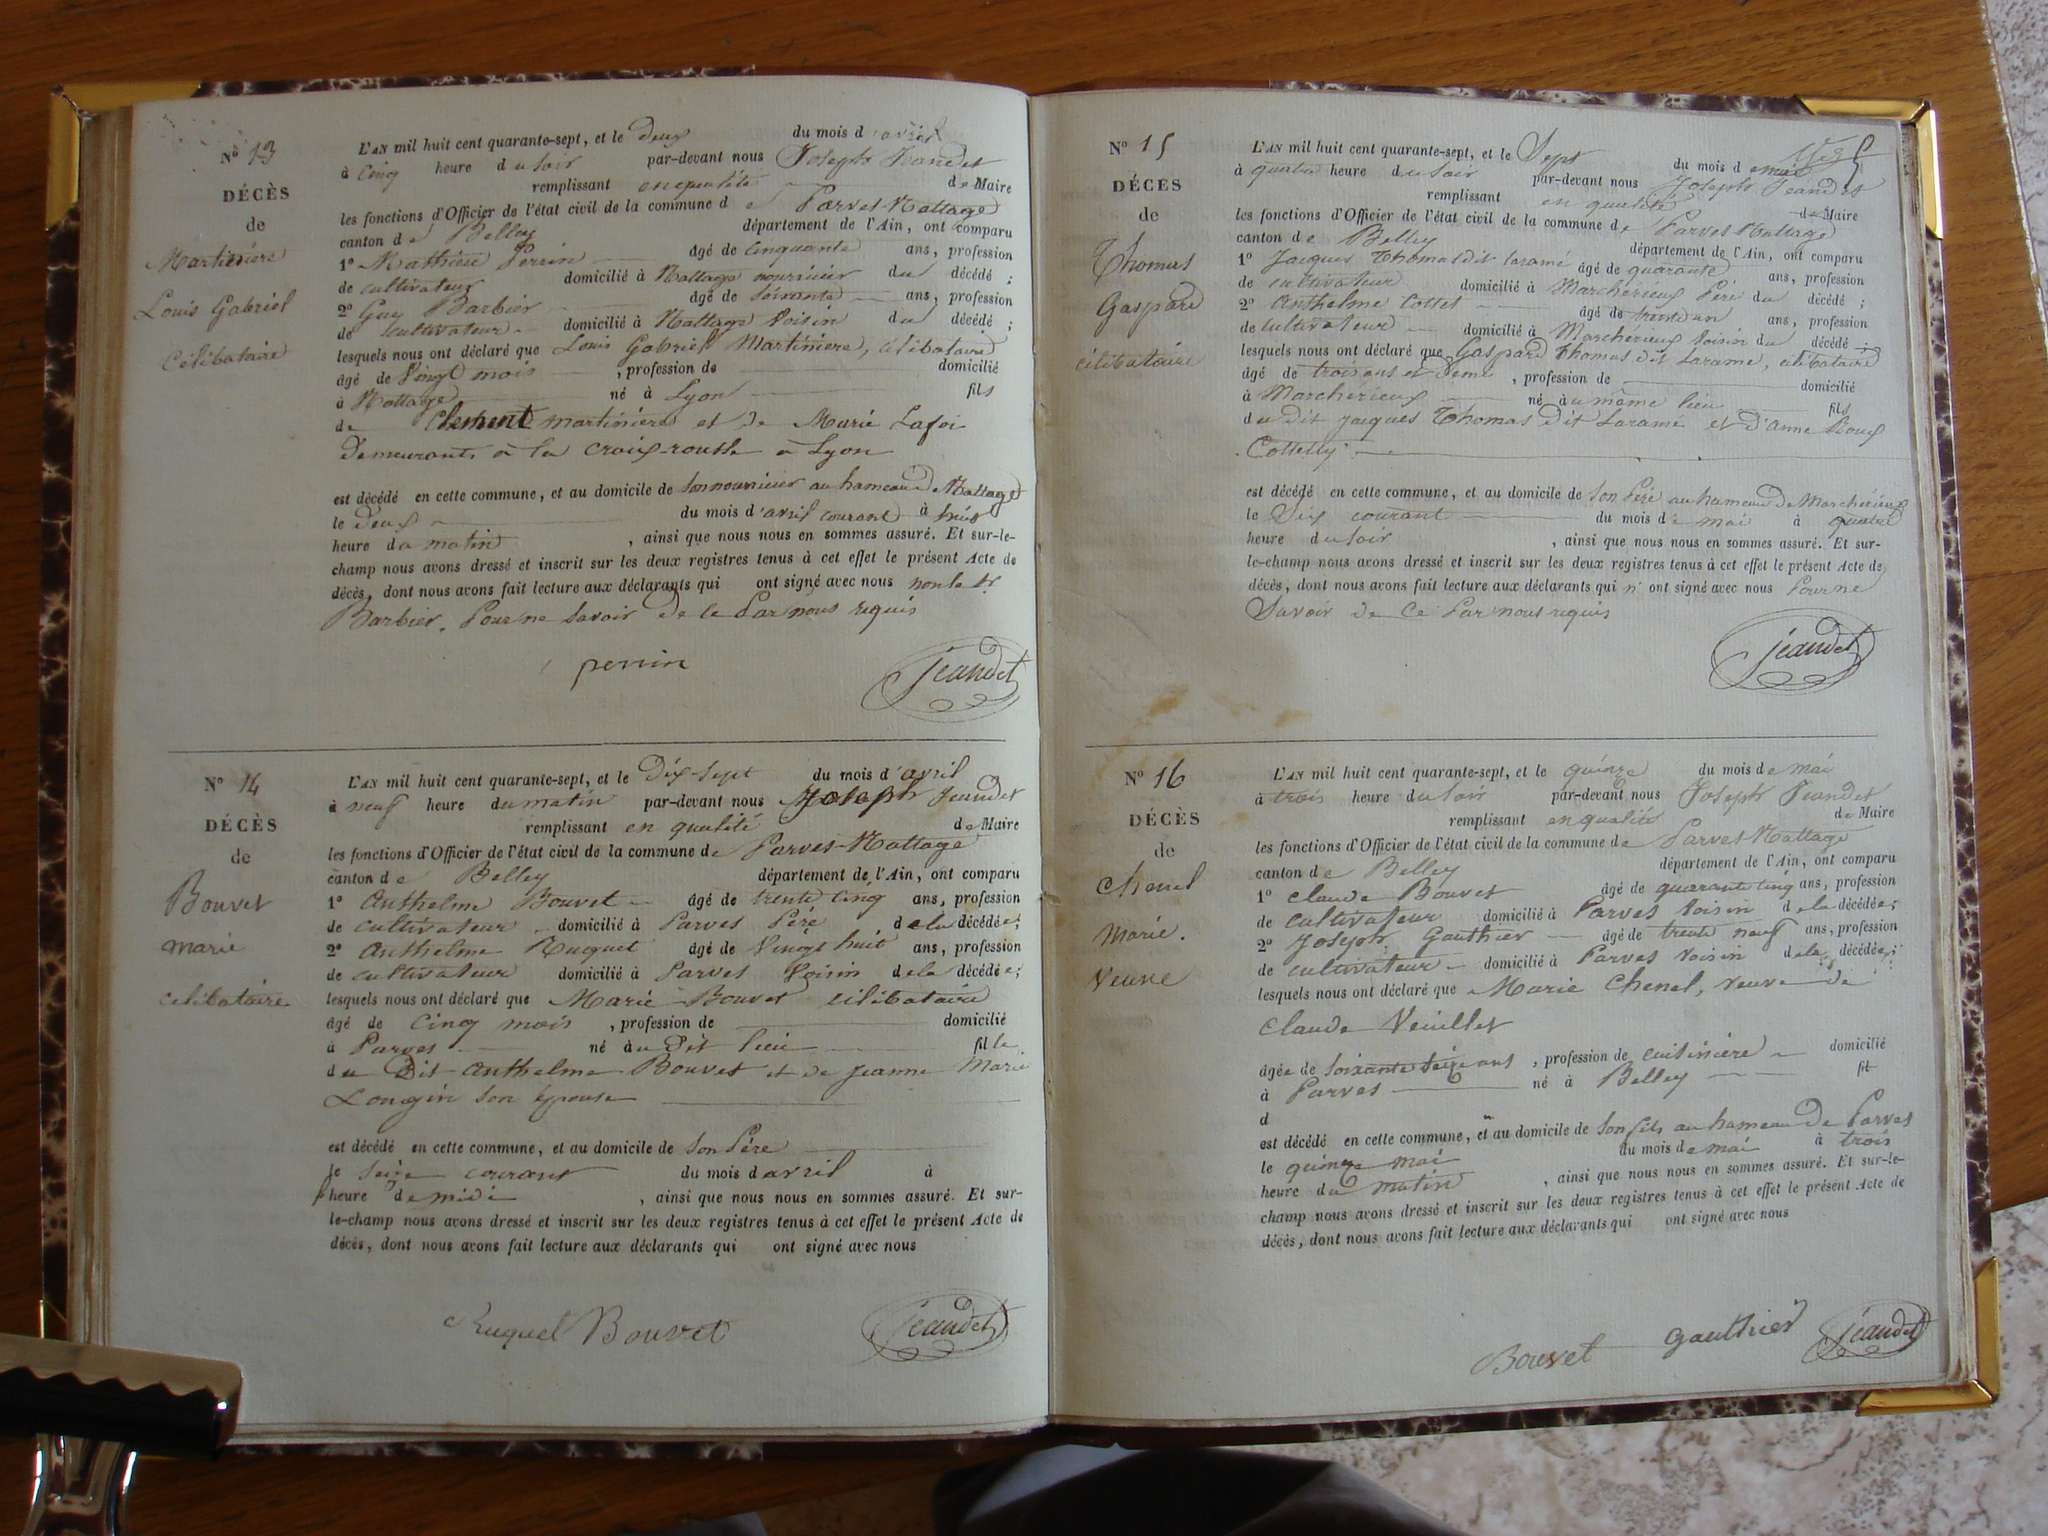 N° 13
DÉCÈS
de
Martiniere
Louis Gabriel
Célibataire
L'AN mil huit cent quarante-sept, et le deux du mois d'avril
à cinq heure du soir par-devant nous Joseph Jeandet
remplissant en qualité de Maire
les fonctions d'Officier de l'état civil de la commune de Parves-Nattage
canton de Belley département de l'Ain, ont comparu
1° Perrin âgé de cinquante ans, profession
de cultivateur domicilié à Nattage nourricier du décédé ;
2° Guy Barbier âgé de soixante ans, profession
de cultivateur domicilié à Nattage voisin du décédé ;
lesquels nous ont déclaré que Louis Gabriel Martiniere, célibataire
âgé de vingt mois , profession de domicilié
à Nattage né à Lyon fils
de Clement martinière et de Marie Lafoi
demeurants à la croix-rousse à Lyon
est décédé en cette commune, et au domicile de son nourricier au hameau de Nattage
le deux du mois d'avril courant à
heure du matin , ainsi que nous nous en sommes assuré. Et sur-le-
champ nous avons dressé et inscrit sur les deux registres tenus à cet effet le présent Acte de
décès, dont nous avons fait lecture aux déclarants qui ont signé avec nous non le Sr
Barbier. Pour ne savoir de le Par nous requis
perrin Jeandet
N° 14
DÉCÈS
de
Bouvet
marie
célibataire
L'AN mil huit cent quarante-sept, et le Dix-sept du mois d'avril
à neuf heure du matin par-devant nous Joseph Jeandet
remplissant en qualité de Maire
les fonctions d'Officier de l'état civil de la commune de Parves-Nattage
canton de Belley département de l'Ain, ont comparu
1° Anthelme Bouvet âgé de trente cinq ans, profession
de cultivateur domicilié à Parves Père de la décédée ;
2° Anthelme Ruquet âgé de vingt huit ans, profession
de cultivateur domicilié à Parves Voisin de la décédée ;
lesquels nous ont déclaré que Marie Bouvet célibataire
âgé de cinq mois , profession de domicilié
à Parves né au dit lieu fille
du Dit Anthelme Bouvet et de Jeanne Marie
Longin son épouse
est décédé en cette commune, et au domicile de son Père
le seize courant du mois d'avril à
heure de midi , ainsi que nous nous en sommes assuré. Et sur-
le-champ nous avons dressé et inscrit sur les deux registres tenus à cet effet le présent Acte de
décès, dont nous avons fait lecture aux déclarants qui ont signé avec nous
Ruquet Bouvet Jeandet
N° 15
DÉCÈS
de
Thomas
Gaspard
célibataire
L'AN mil huit cent quarante-sept, et le Sept du mois de mai
à quatre heure du soir par-devant nous Joseph Jeandet
remplissant en qualité de Maire
les fonctions d'Officier de l'état civil de la commune de Parves Nattage
canton de Belley département de l'Ain, ont comparu
1° Jacques Thomas dit laramé âgé de quarante ans, profession
de cultivateur domicilié à Marchérieux Père du décédé ;
2° Anthelme Cottet âgé de ans, profession
de cultivateur domicilié à Marchérieux voisin du décédé ;
lesquels nous ont déclaré que Gaspard Thomas dit Larame, célibataire
âgé de trois ans et demi , profession de domicilié
à Marchérieux né au même lieu fils
du Dit Jacques Thomas Dit Larame et d'Anne Roux
est décédé en cette commune, et au domicile de son Père au hameau de Marchérieux
le Six courant du mois de mai à quatre
heure du soir , ainsi que nous nous en sommes assuré. Et sur-
le-champ nous avons dressé et inscrit sur les deux registres tenus à cet effet le présent Acte de
décès, dont nous avons fait lecture aux déclarants qui n'ont signé avec nous Pour ne
Savoir de Ce Par nous requis
Jeandet
N° 16
DÉCÈS
de
Chenel
Marie.
Veuve
L'AN mil huit cent quarante-sept, et le quinze du mois de mai
à trois heure du soir par-devant nous Joseph Jeandet
remplissant en qualité de Maire
les fonctions d'Officier de l'état civil de la commune de Parves Nattage
canton de Belley département de l'Ain, ont comparu
1° Claude Bouvet âgé de quarante cinq ans, profession
de cultivateur domicilié à Parves voisin de la décédée ;
2° Joseph Gauthier âgé de trente neuf ans, profession
de cultivateur domicilié à Parves voisin de la décédée ;
lesquels nous ont déclaré que Marie Chenel, veuve de
Claude Veuillet
âgée de soixante seize ans , profession de cuisinière domicilié
à Parves né à Belley fil
d
est décédé en cette commune, et au domicile de son fils au hameau de Parves
le quinze mai du mois de mai à trois
heure du matin , ainsi que nous nous en sommes assuré. Et sur-le-
champ nous avons dressé et inscrit sur les deux registres tenus à cet effet le présent Acte de
décès, dont nous avons fait lecture aux déclarants qui ont signé avec nous
Bouvet Gauthier Jeandet